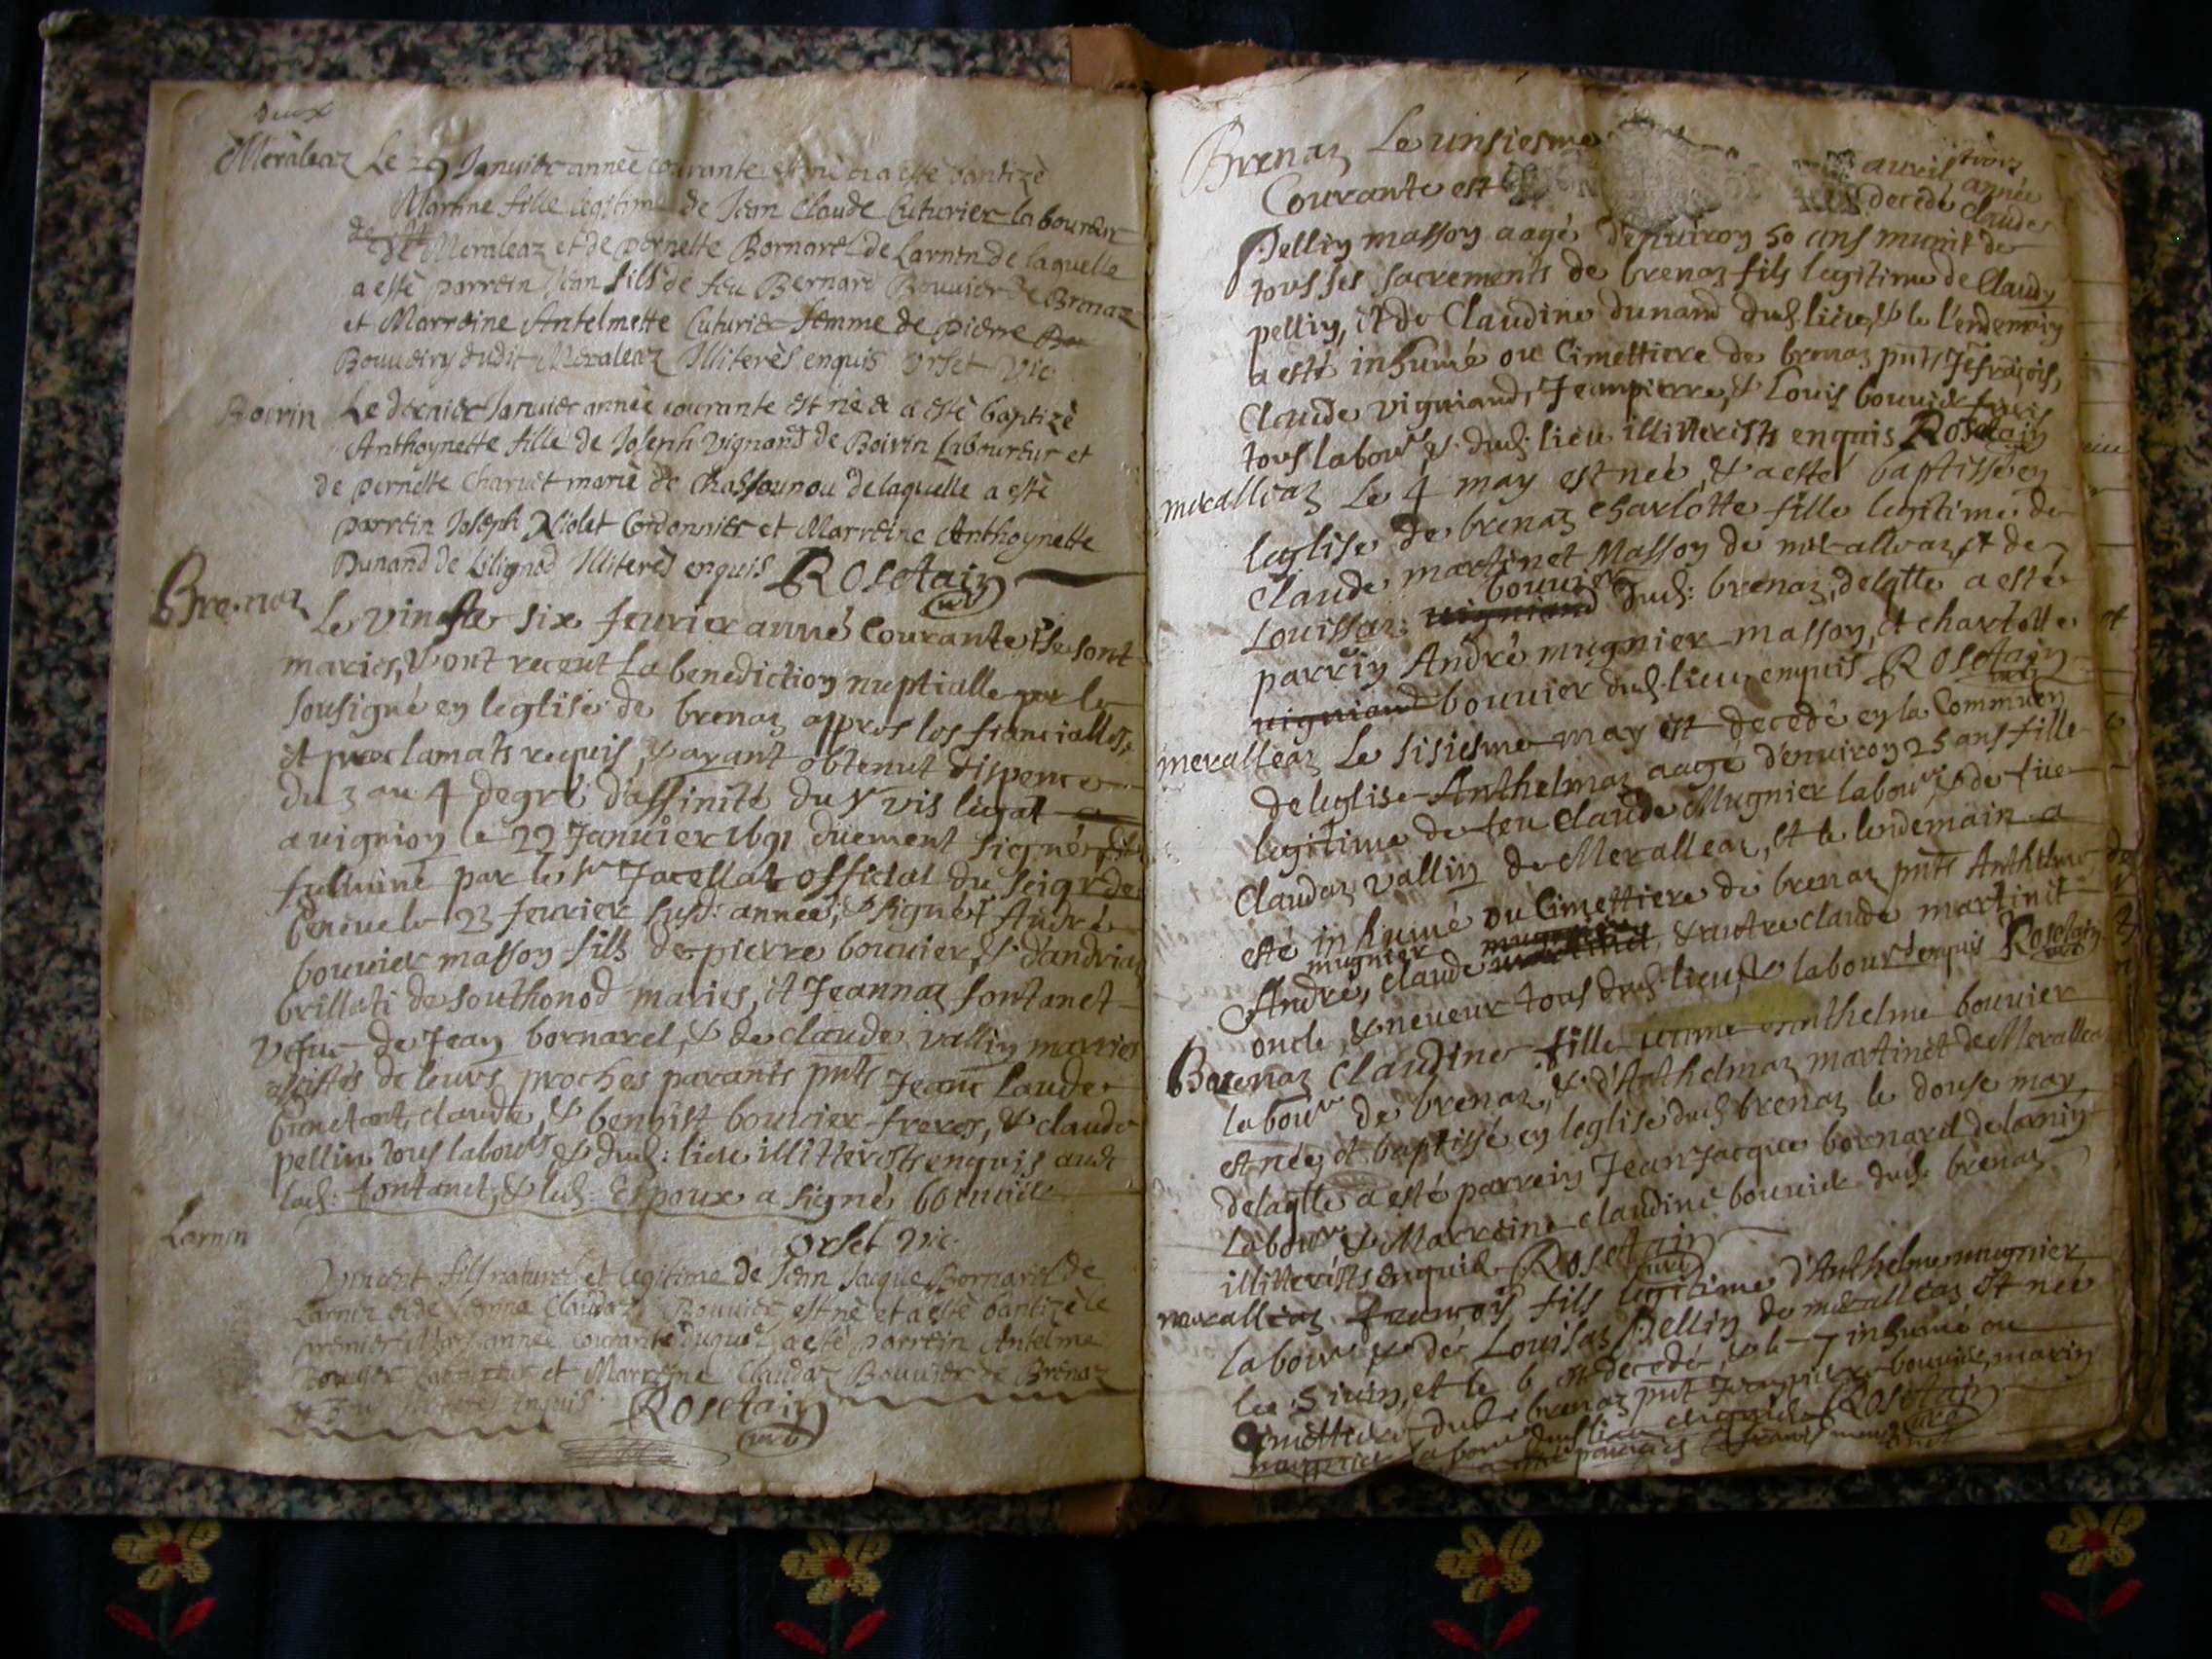 deux
Meraleaz Le 29 Januier année courante est né et a esté baptizè
Martine fille legitime de Jean Claude Cuturier laboureur
de Meraleaz et de pernette Bornarel de Larnin de laquelle
a estè parrein Jean fils de feu Bernard Bouuier de Brenaz
et Marreine Antelmette Cuturier femme de pierre
Bouueiry dudit Meraleaz Illiterès enquis Orset Vic
Boirin Le dernier Januier annèe courante est nèe a estè baptizè
Anthoynette fille de Joseph Vignand de Boirin Laboureur et
de pernette Charuet mariè de Chassounou delaquelle a estè
parrein Joseph Niolet Cordonnier et Marreine Anthoynette
Dunand de Lilignod Illiterès enquis ROSETain
Brenaz Le vingte six feurier anné Courante se sont
mariés, & ont receut La benediction nuptialle par le
sousigné en leglise de brenaz appres les fiancialles,
et proclamats requis, & ayant obtenut dispence
du 3 au 4 degré d'affinité du Sr vis legat
auignion le 29 Januier 1691 duement signé
fulminé par le Sr Jacellaz official du seigr de
Geneue le 23 feurier susd: année, & signé André
bouuier masson fils de pierre bouuier, & d'andriaz
brillati de southonod mariés, et Jeannaz fontanet
vefue de Jean bornarel, & de claude vallin marries
assistés de leurs proches parants pnts Jean claude
claude, & benoist bouuier freres, & claude
pellin tous labours & dud: lieu illitterés enquis
lad: fontanet, & led: Espoux a signé bouuier
Orset Vic.
Larnin
Vincent fils naturel et legitime de Jean Jacque Bornarel de
Larnin et de Jeanne Claudaz Bouuier est né et a estè baptizè le
premier Mars annèe courante duquel a esté parrein Antelme
Bouuier Laboureur et Marreine Claudaz Bouuier de Brenaz
enquis ROSETain
Brenaz Le unsiesme auril année
Courante est decedé Claude
Pellin masson aagé d'enuiron 50 ans munit de
tous ses sacrements de brenaz fils legitime de Claude
pellin, et de Claudine dunand dud. lieu, & le l'endemain
a esté inhumé ou Cimettiere de brenaz pnts
Claude vigniand, Jeanpierre, & Louis bouuier freres
tous labours & dud: lieu illitterés enquis Rosetain
meralleaz Le 4 may est neé, & a esté baptissé en
leglise de brenaz charlotte fille legitime de
Claude martinet Masson de meralleaz, et de
Louissaz bouuier dud: brenaz, delaqlle a esté
parrin André mugnier masson, et charlotte
bouuier dud. lieu enquis ROSETain
meralleaz Le sisiesme may est decedé en la Communion
de leglise Anthelmaz aagé d'enuiron 25 ans fille
legitime de feu Claude Mugnier labour, & de fue
Claudaz vallin de Meralleaz, et le lendemain a
esté inhumé ou Cimettiere de brenaz pnts Anthelme
André, claude mugnier, & autre claude martinet
oncle, & neueur tous dud. lieu, & labours enquis Rosetain
Brenaz Claudine fille d'Anthelme bouuier
labour de brenaz, & d'Anthelmaz martinet de Meralleaz
est née, et baptissé en leglise dud brenaz le douse may,
delaqlle a esté parrein Jean Jacque bornarel de larnin
Labour & Marreine claudine bouuier dud. brenaz
illitterés enquis ROSETain
meralleaz francois fils legitime d'Anthelme mugnier
labour & de Louisaz Pellin de meralleaz est neé
le 5 iuin, et le 6 est decedé, & le 7 inhumé ou
Cimettiere dud. brenaz pnt Jeanpierre bouuier, marin
mugnier labour dud lieu enquis ROSETain